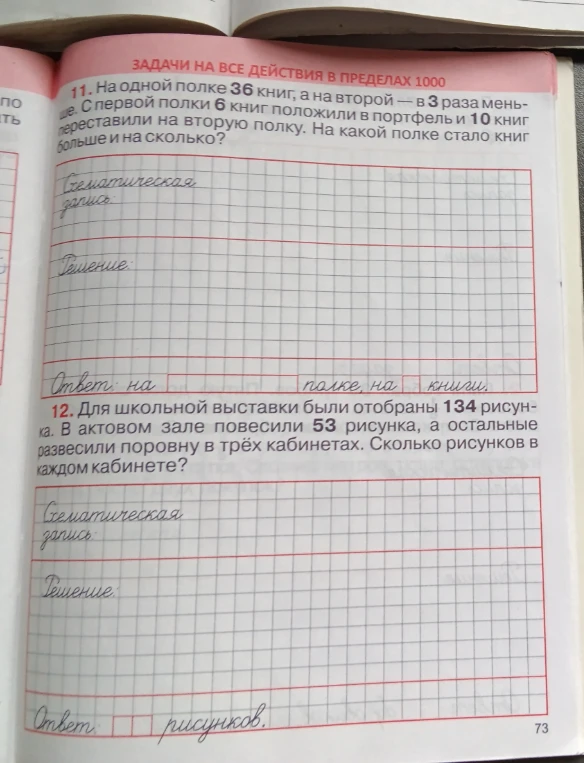 по
ть
ЗАДАЧИ НА ВСЕ ДЕЙСТВИЯ В ПРЕДЕЛАХ 1000
11. На одной полке 36 книг, а на второй — в 3 раза мень-
ше. С первой полки 6 книг положили в портфель и 10 книг
переставили на вторую полку. На какой полке стало книг
больше и на сколько?
Схематическая
запись:
Решение:
Ответ: на полке, на книги.
12. Для школьной выставки были отобраны 134 рисун-
ка. В актовом зале повесили 53 рисунка, а остальные
развесили поровну в трёх кабинетах. Сколько рисунков в
каждом кабинете?
Схематическая
запись:
Решение:
Ответ: рисунков.
73